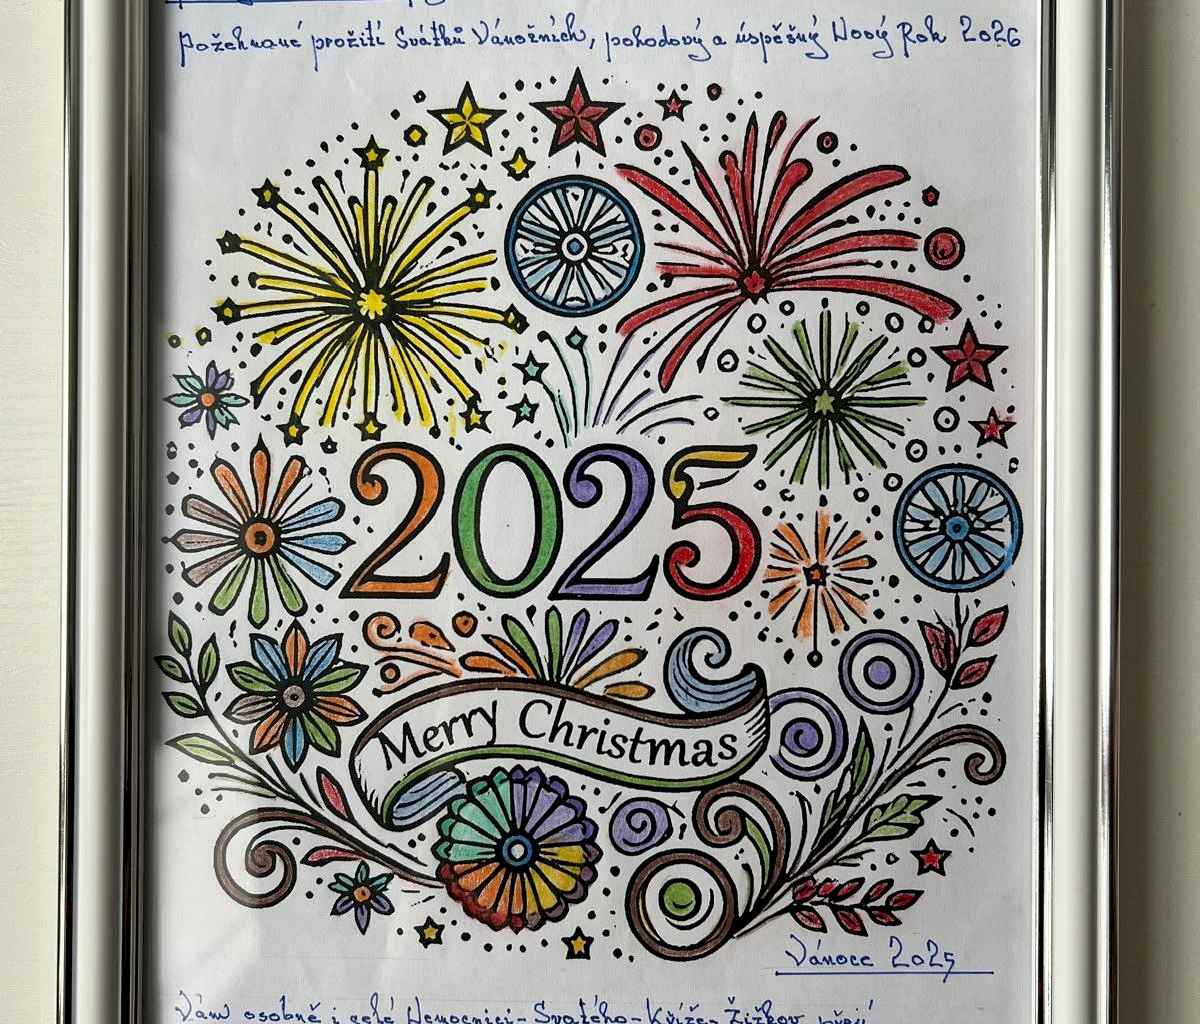 Požehnané prožití Svátků Vánočních, pohodový a úspěšný Nový Rok 2026
2025
Merry Christmas
Vánoce 2025
Vám osobně i celé Nemocnici - Svatého - Kříže - Žižkov přejí